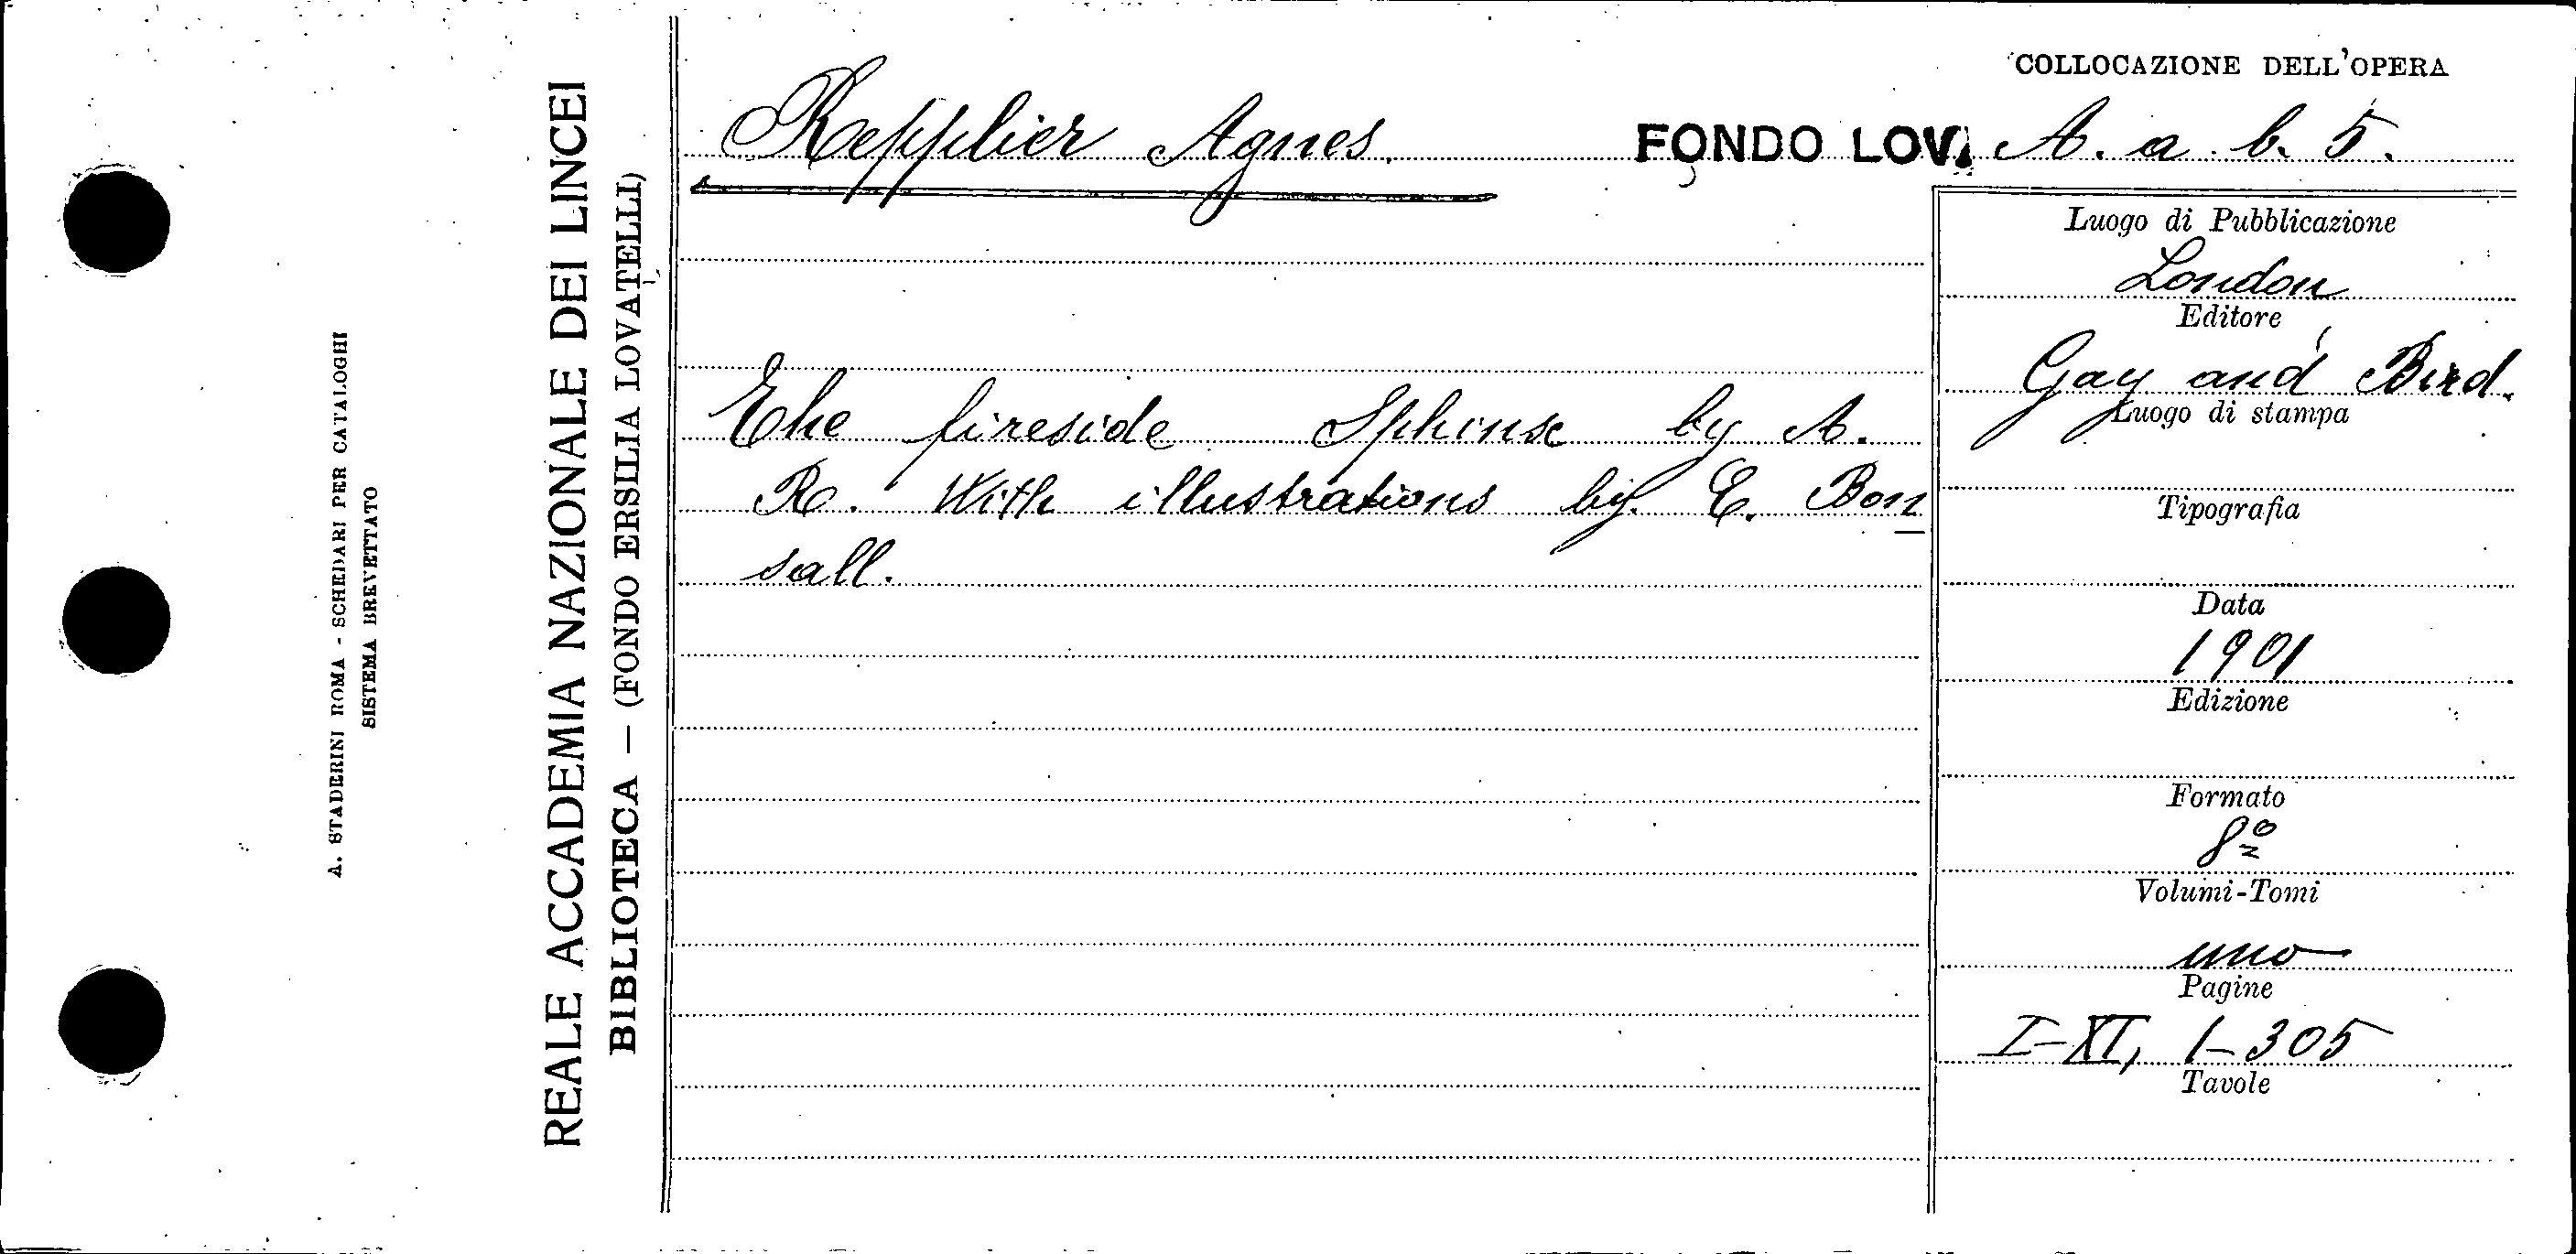 A. STADERINI ROMA - SCHEDARI PER CATALOGHI
SISTEMA BREVETTATO
REALE ACCADEMIA NAZIONALE DEI LINCEI
BIBLIOTECA — (FONDO ERSILIA LOVATELLI)
COLLOCAZIONE DELL'OPERA
Repplier Agnes.
FONDO LOV. A. a. b. 5.
The fireside Sphinx by A.
R. With illustrations by E. Bon
sall.
Luogo di Pubblicazione
London
Editore
Gay and Bird.
Luogo di stampa
Tipografia
Data
1901
Edizione
Formato
8º
Volumi-Tomi
uno
Pagine
I-XI, 1-305
Tavole